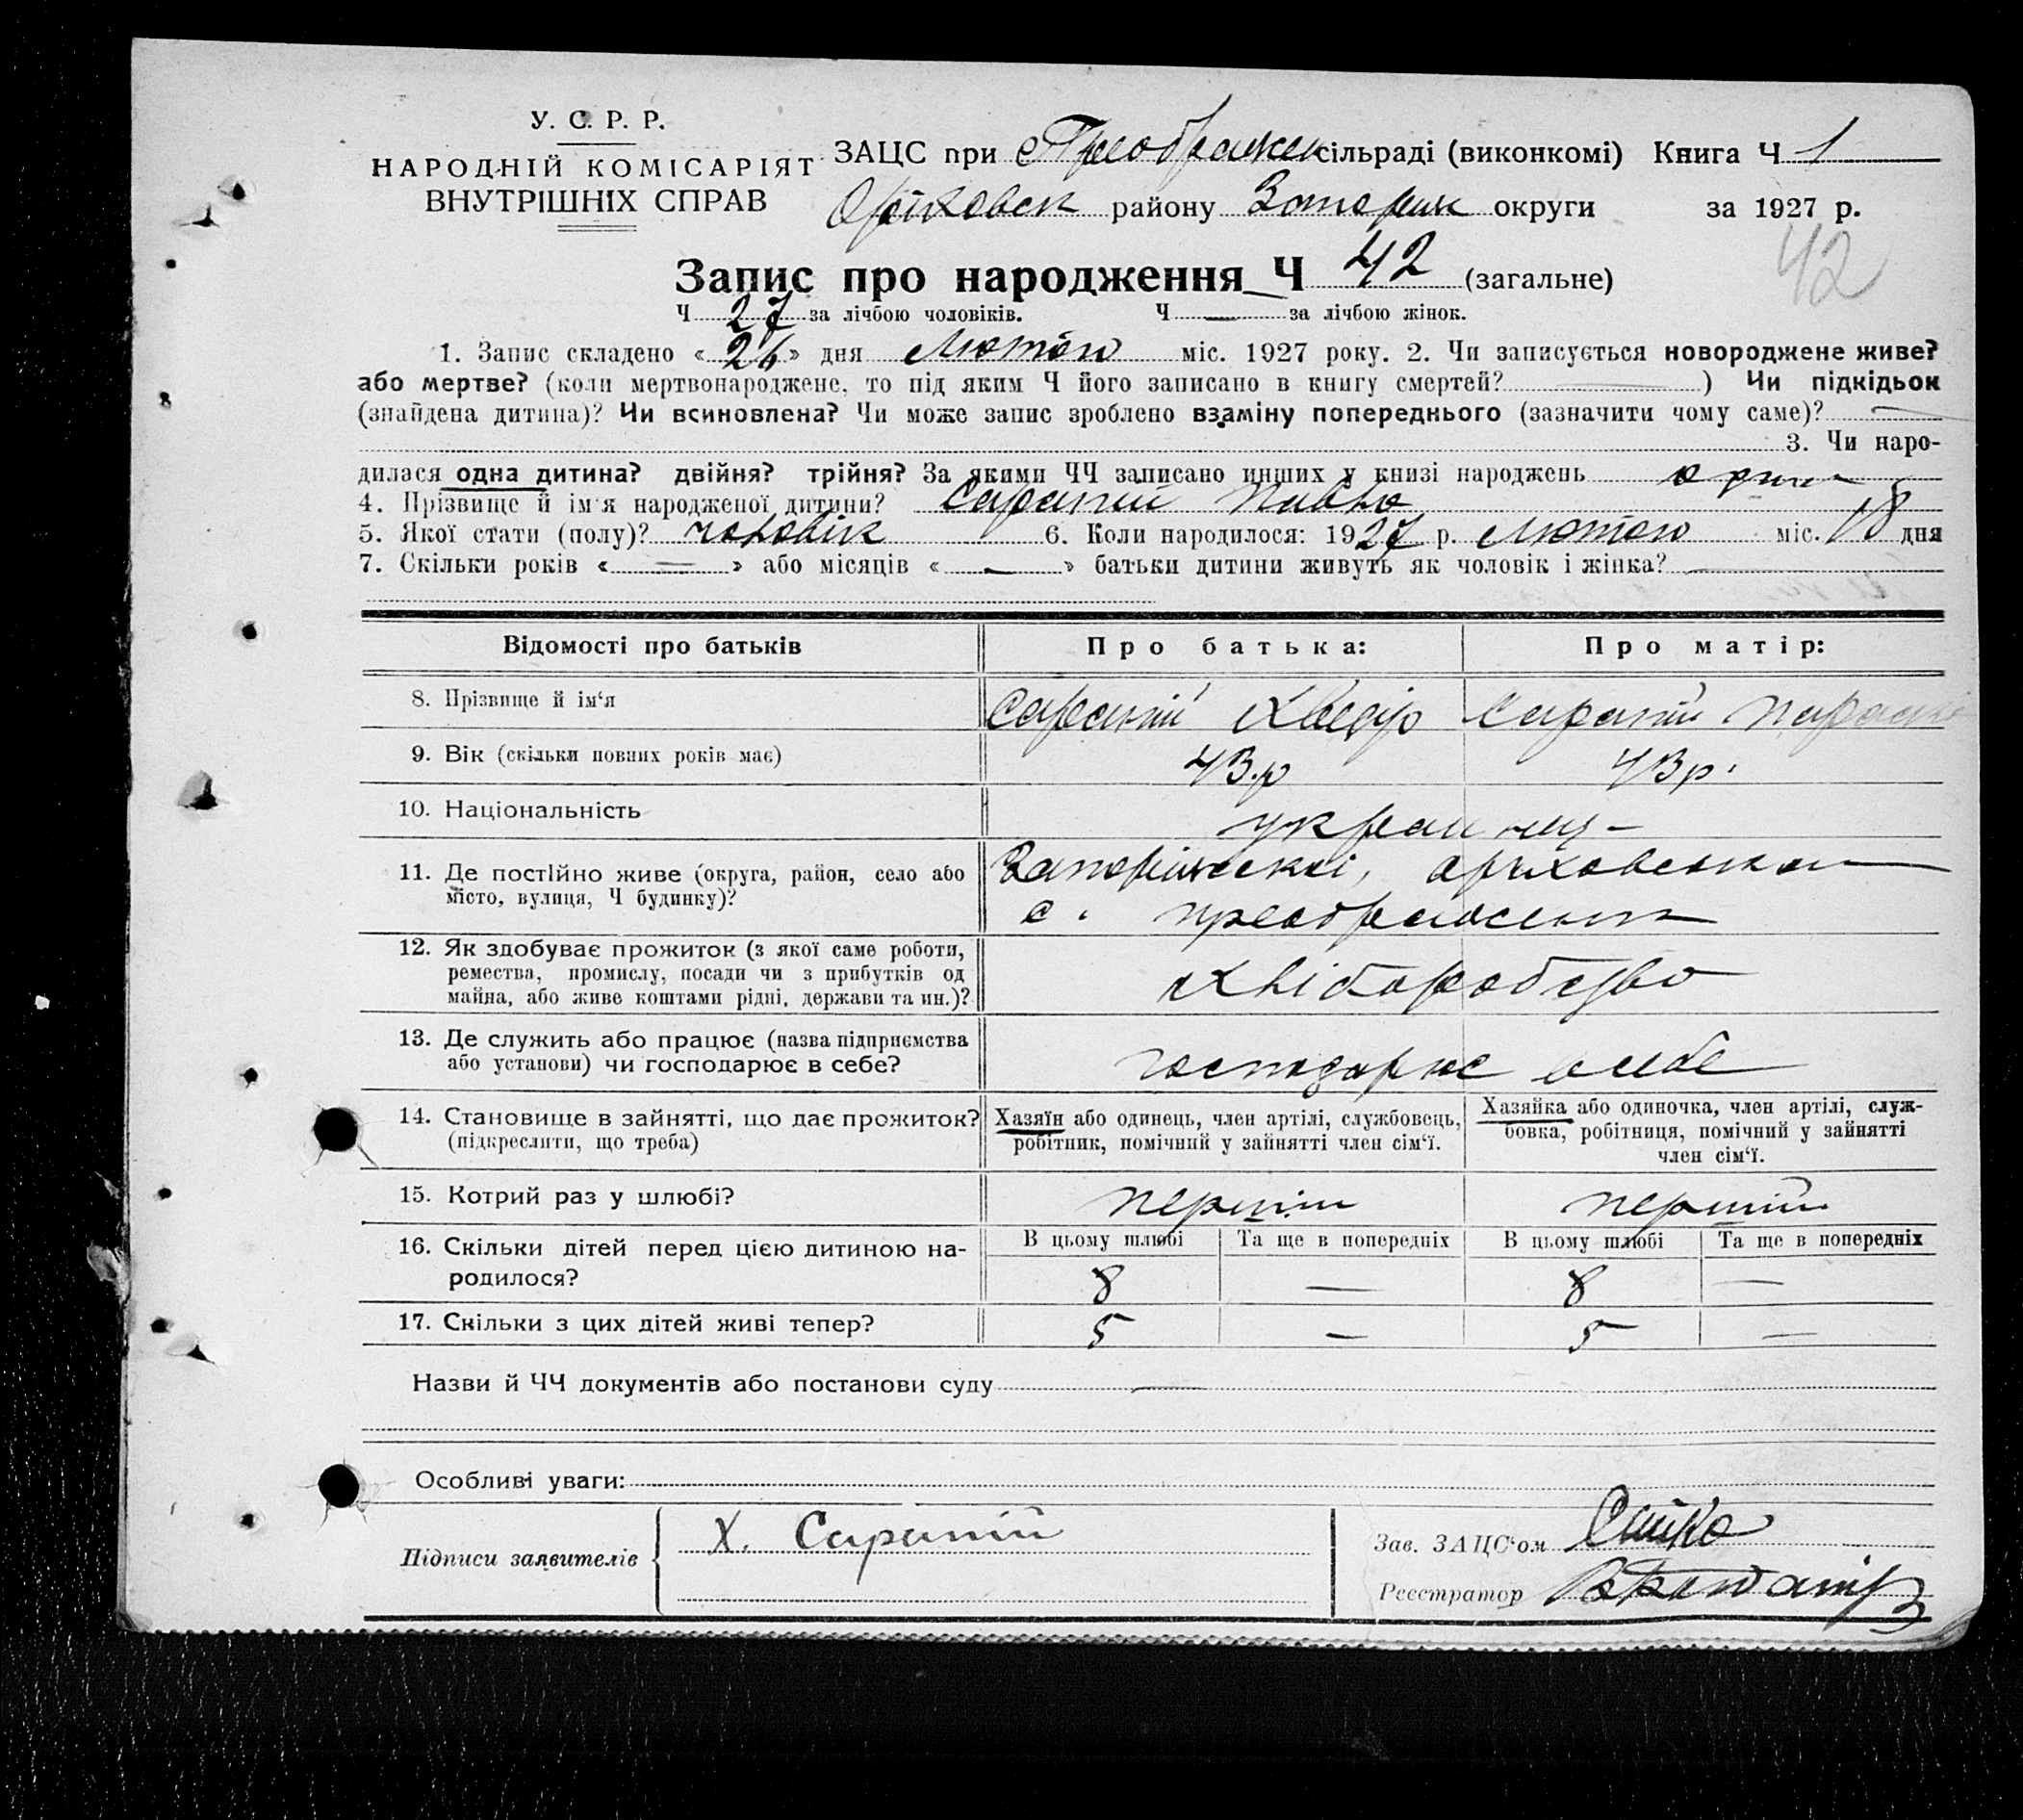 У. С. Р. Р.
НАРОДНІЙ КОМІСАРІЯТ
ВНУТРІШНІХ СПРАВ
ЗАЦС при Преображен сільраді (виконкомі) Книга Ч 1
Оріховськ району Запоріж округи за 1927 р.
42
Запис про народження Ч 42 (загальне)
Ч 27 за лічбою чоловіків. Ч — за лічбою жінок.
1. Запис складено « 26 » дня Лютого міс. 1927 року. 2. Чи записується новороджене живе?
або мертве? (коли мертвонароджене, то під яким Ч його записано в книгу смертей? — ) Чи підкідьок
(знайдена дитина)? Чи всиновлена? Чи може запис зроблено взаміну попереднього (зазначити чому саме)? —
3. Чи наро-
дилася одна дитина? двійня? трійня? За якими ЧЧ записано инших у книзі народжень один
4. Прізвище й ім'я народженої дитини? Сарапій Павло
5. Якої стати (полу)? чоловік 6. Коли народилося: 1927 р. Лютого міс. 18 дня
7. Скільки років « — » або місяців « — » батьки дитини живуть як чоловік і жінка? —
Відомості про батьків Про батька: Про матір:
8. Прізвище й ім'я Сарапій Хведір Сарапій Параск
9. Вік (скільки повних років має) 43.р 43р.
10. Національність
11. Де постійно живе (округа, район, село або
місто, вулиця, Ч будинку)?
с.
12. Як здобуває прожиток (з якої саме роботи,
ремества, промислу, посади чи з прибутків од
майна, або живе коштами рідні, держави та ин.)?
хліборобство
13. Де служить або працює (назва підприємства
або установи) чи господарює в себе?
господарює в себе
14. Становище в зайнятті, що дає прожиток?
(підкреслити, що треба)
Хазяїн або одинець, член артілі, службовець,
робітник, помічний у зайнятті член сім'ї.
Хазяйка або одиночка, член артілі, служ-
бовка, робітниця, помічний у зайнятті
член сім'ї.
15. Котрий раз у шлюбі? першій першій
16. Скільки дітей перед цією дитиною на-
родилося?
В цьому шлюбі Та ще в попередніх В цьому шлюбі Та ще в попередніх
8 — 8 —
17. Скільки з цих дітей живі тепер? 5 — 5 —
Назви й ЧЧ документів або постанови суду —
Особливі уваги:
Підписи заявителів Х. Сарапій
Зав. ЗАЦС'ом
Реєстратор